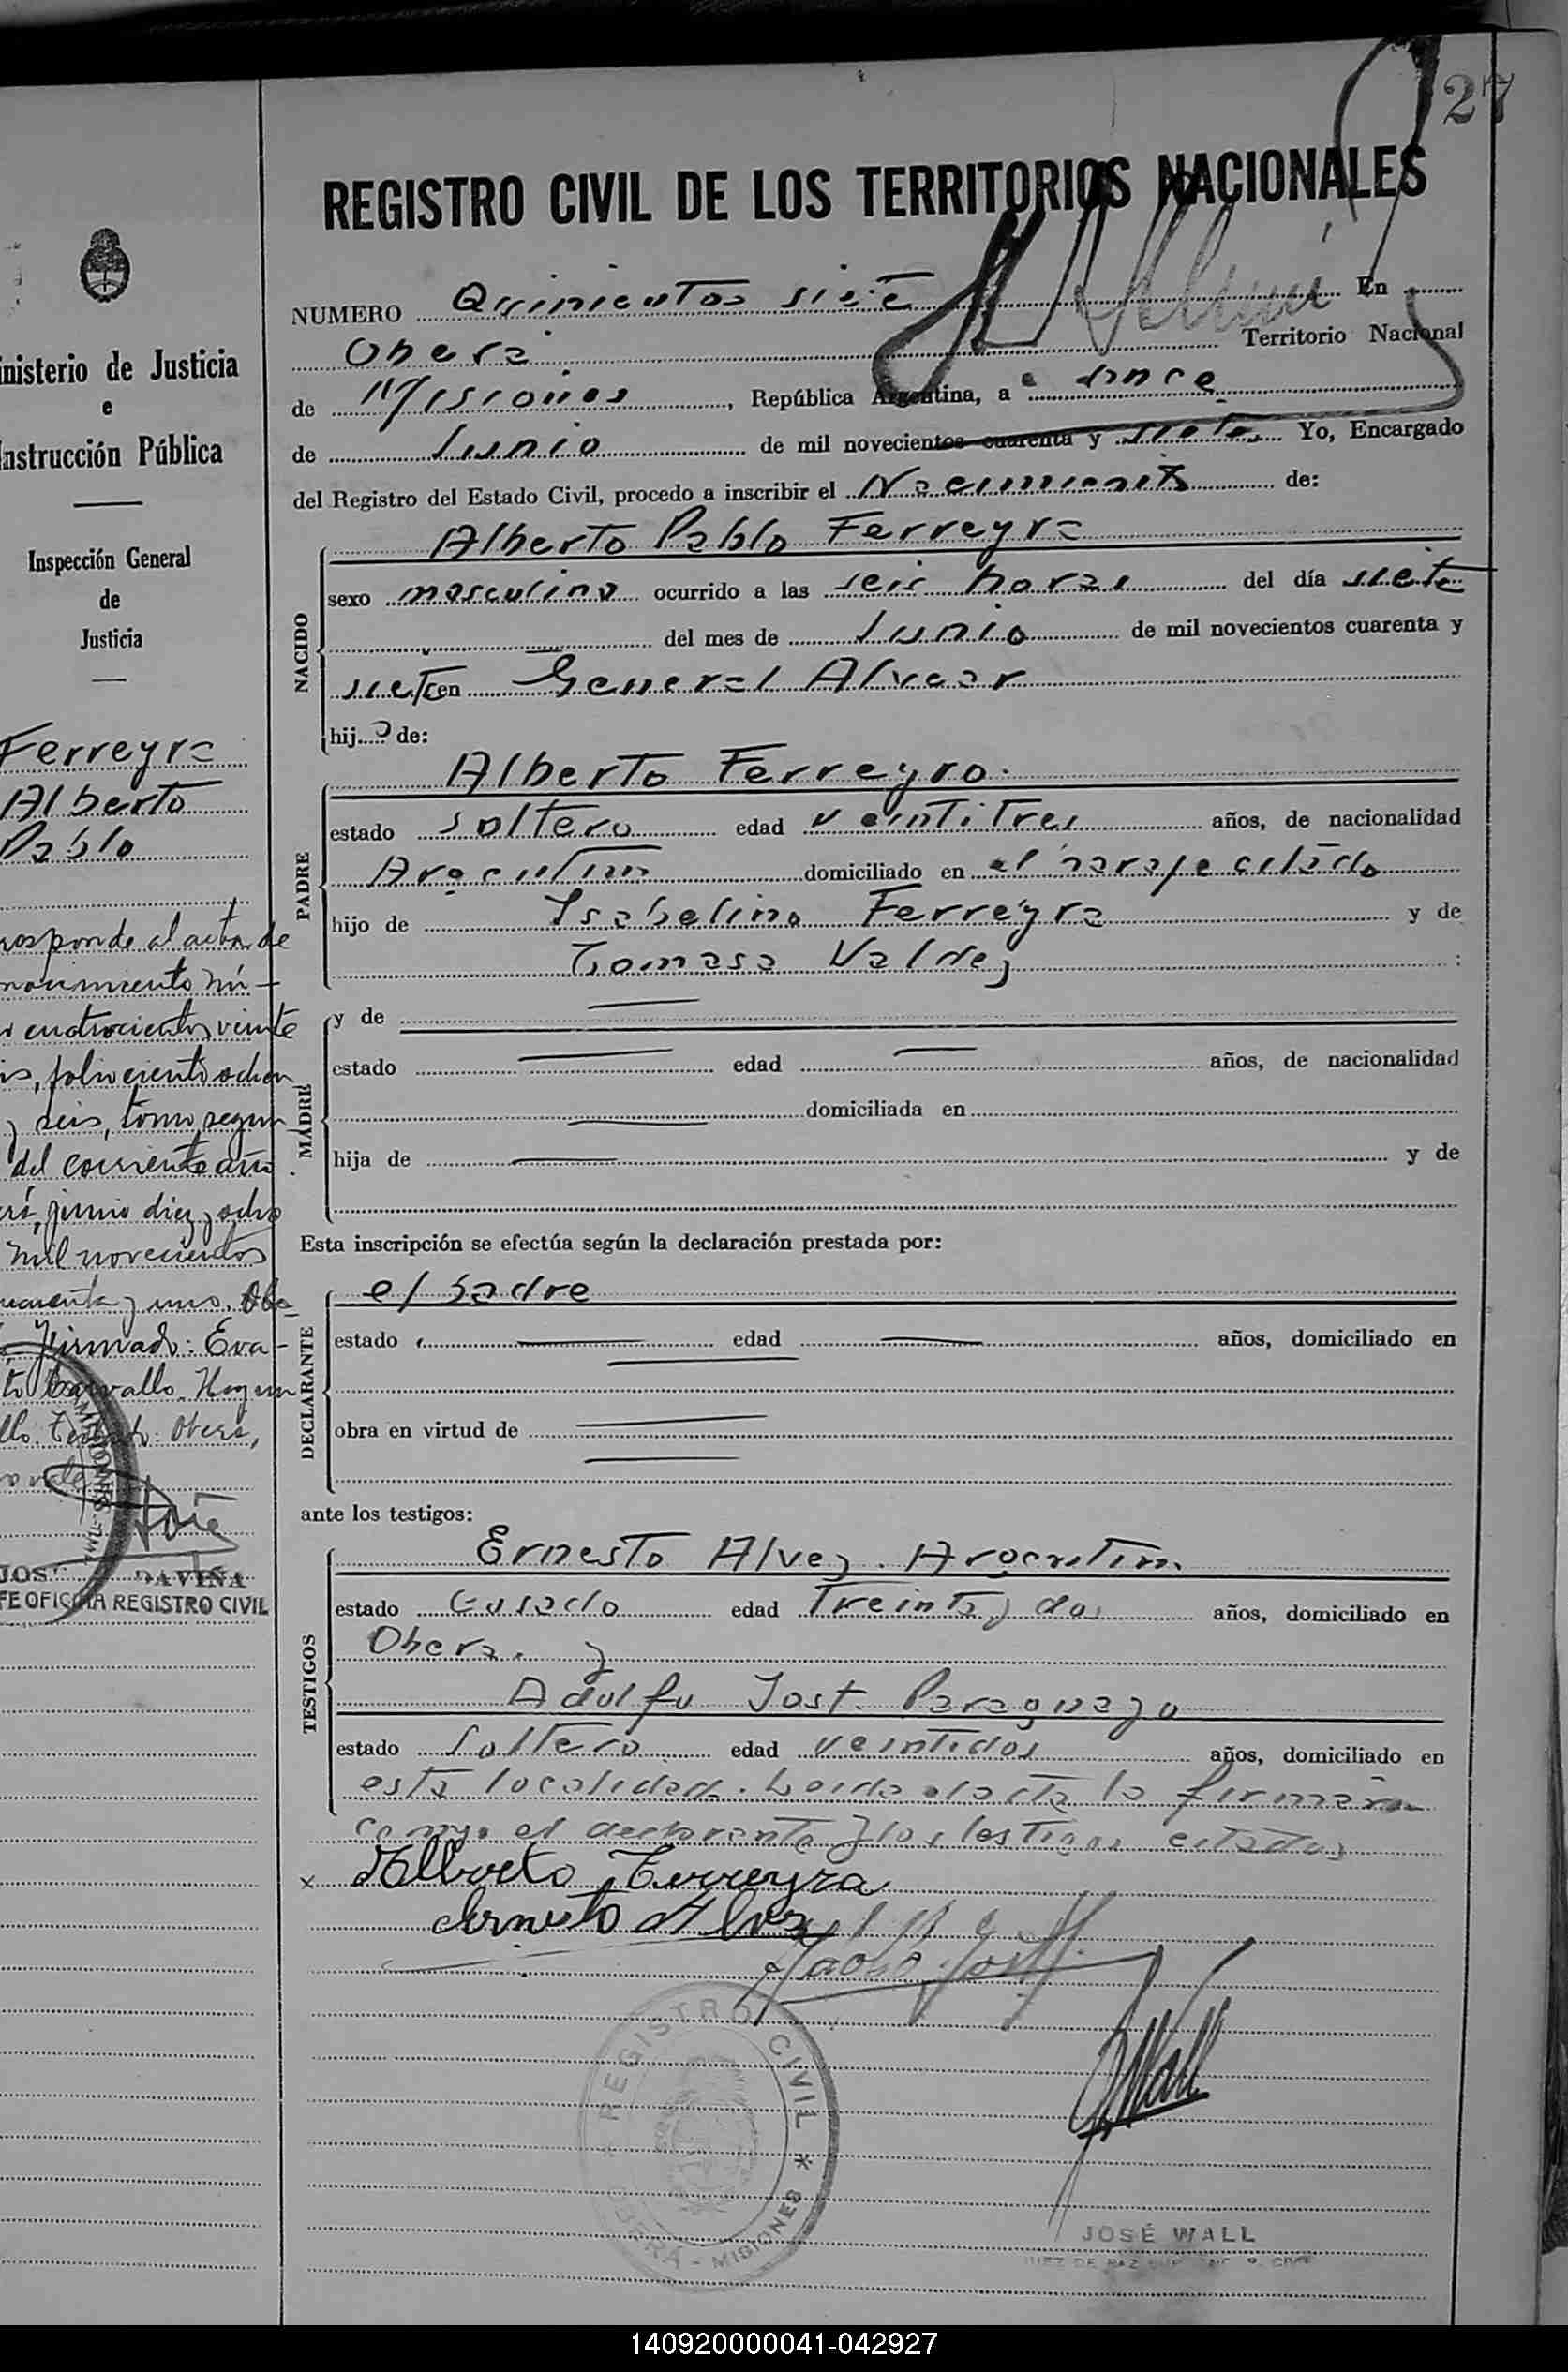 27
REGISTRO CIVIL DE LOS TERRITORIOS NACIONALES
NUMERO Quinientos siete En
Oberá Territorio Nacional
de Misiones, República Argentina, a once
de Junio de mil novecientos cuarenta y siete Yo, Encargado
del Registro del Estado Civil, procedo a inscribir el Nacimiento de:
NACIDO
Alberto Pablo Ferreyra
sexo masculino ocurrido a las seis horas del día siete
del mes de Junio de mil novecientos cuarenta y
siete en General Alvear
hijo de:
PADRE
Alberto Ferreyro.
estado soltero edad veintitres años, de nacionalidad
Argentino domiciliado en el paraje citado
hijo de Isabelino Ferreyra y de
Tomasa Valdez
MADRE
y de
estado edad años, de nacionalidad
domiciliada en
hija de y de
Esta inscripción se efectúa según la declaración prestada por:
DECLARANTE
el padre
estado edad años, domiciliado en
obra en virtud de
ante los testigos:
TESTIGOS
Ernesto Alvez. Argentino.
estado Casado edad Treinta y dos años, domiciliado en
Oberá. y
Adolfo Jost. Paraguayo
estado Soltero edad veintidos años, domiciliado en
esta localidad. Leida el acta la firmaron
conmigo el declarante y los testigos citados
x Alberto Ferreyra
Ernesto Alvez
REGISTRO CIVIL
OBERÁ - MISIONES
JOSÉ WALL
JUEZ DE PAZ
inisterio de Justicia
e
Instrucción Pública
Inspección General
de
Justicia
Ferreyra
Alberto
Pablo
responde al acta de
nacimiento nú-
o cuatrocientos veinte
is, folio ciento ochen
y seis, tomo segun
del corriente año.
erá, junio diez y ocho
mil novecientos
cuarenta y uno.
Firmado: Eva-
to Carvallo. Hay un
llo. Oberá,
vale
JOSÉ DAVIÑA
FE OFICINA REGISTRO CIVIL
140920000041-042927